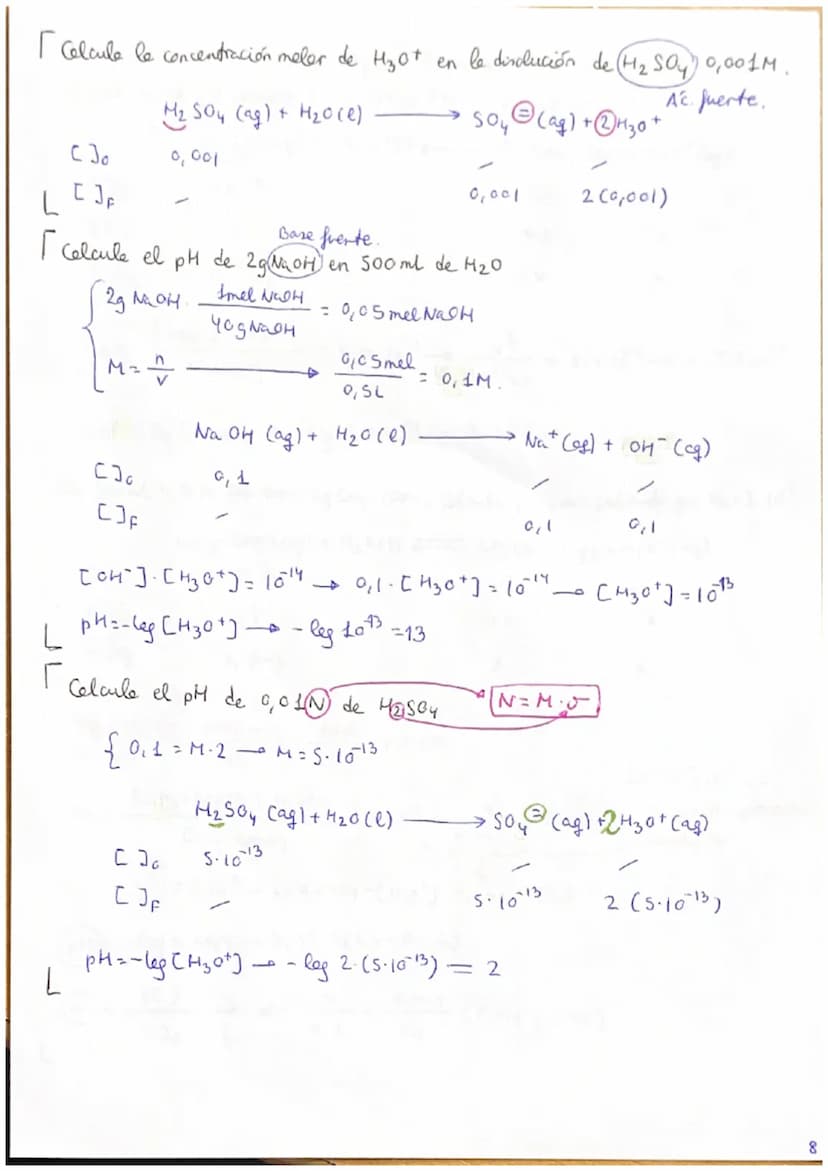 Calcula la concentración molar de H₃O⁺ en la disolución de H₂SO₄ 0,001M.
Ác. fuerte.
H₂SO₄ (aq) + H₂O(l) ⟶ SO₄⁼(aq) + 2H₃O⁺
[ ]₀ 0,001 – –
[ ]F – 0,001 2(0,001)
Base fuerte.
Calcula el pH de 2g NaOH en 500ml de H₂O
2g NaOH · 1mol NaOH / 40gNaOH = 0,05molNaOH
M = n/v ⟶ 0,05mol / 0,5L = 0,1M.
NaOH (aq) + H₂O(l) ⟶ Na⁺(aq) + OH⁻(aq)
[ ]₀ 0,1 – –
[ ]F – 0,1 0,1
[OH⁻]·[H₃O⁺] = 10⁻¹⁴ → 0,1·[H₃O⁺] = 10⁻¹⁴ → [H₃O⁺] = 10⁻¹³
pH=-log[H₃O⁺] → -log 10⁻¹³ = 13
Calcula el pH de 0,01N de H₂SO₄ N = M·v
{ 0,1 = M·2 → M = 5·10⁻¹³
H₂SO₄ (aq) + H₂O(l) ⟶ SO₄⁼(aq) + 2H₃O⁺(aq)
[ ]₀ 5·10⁻¹³ – –
[ ]F – 5·10⁻¹³ 2(5·10⁻¹³)
pH=-log[H₃O⁺] → -log 2·(5·10⁻¹³) = 2
8